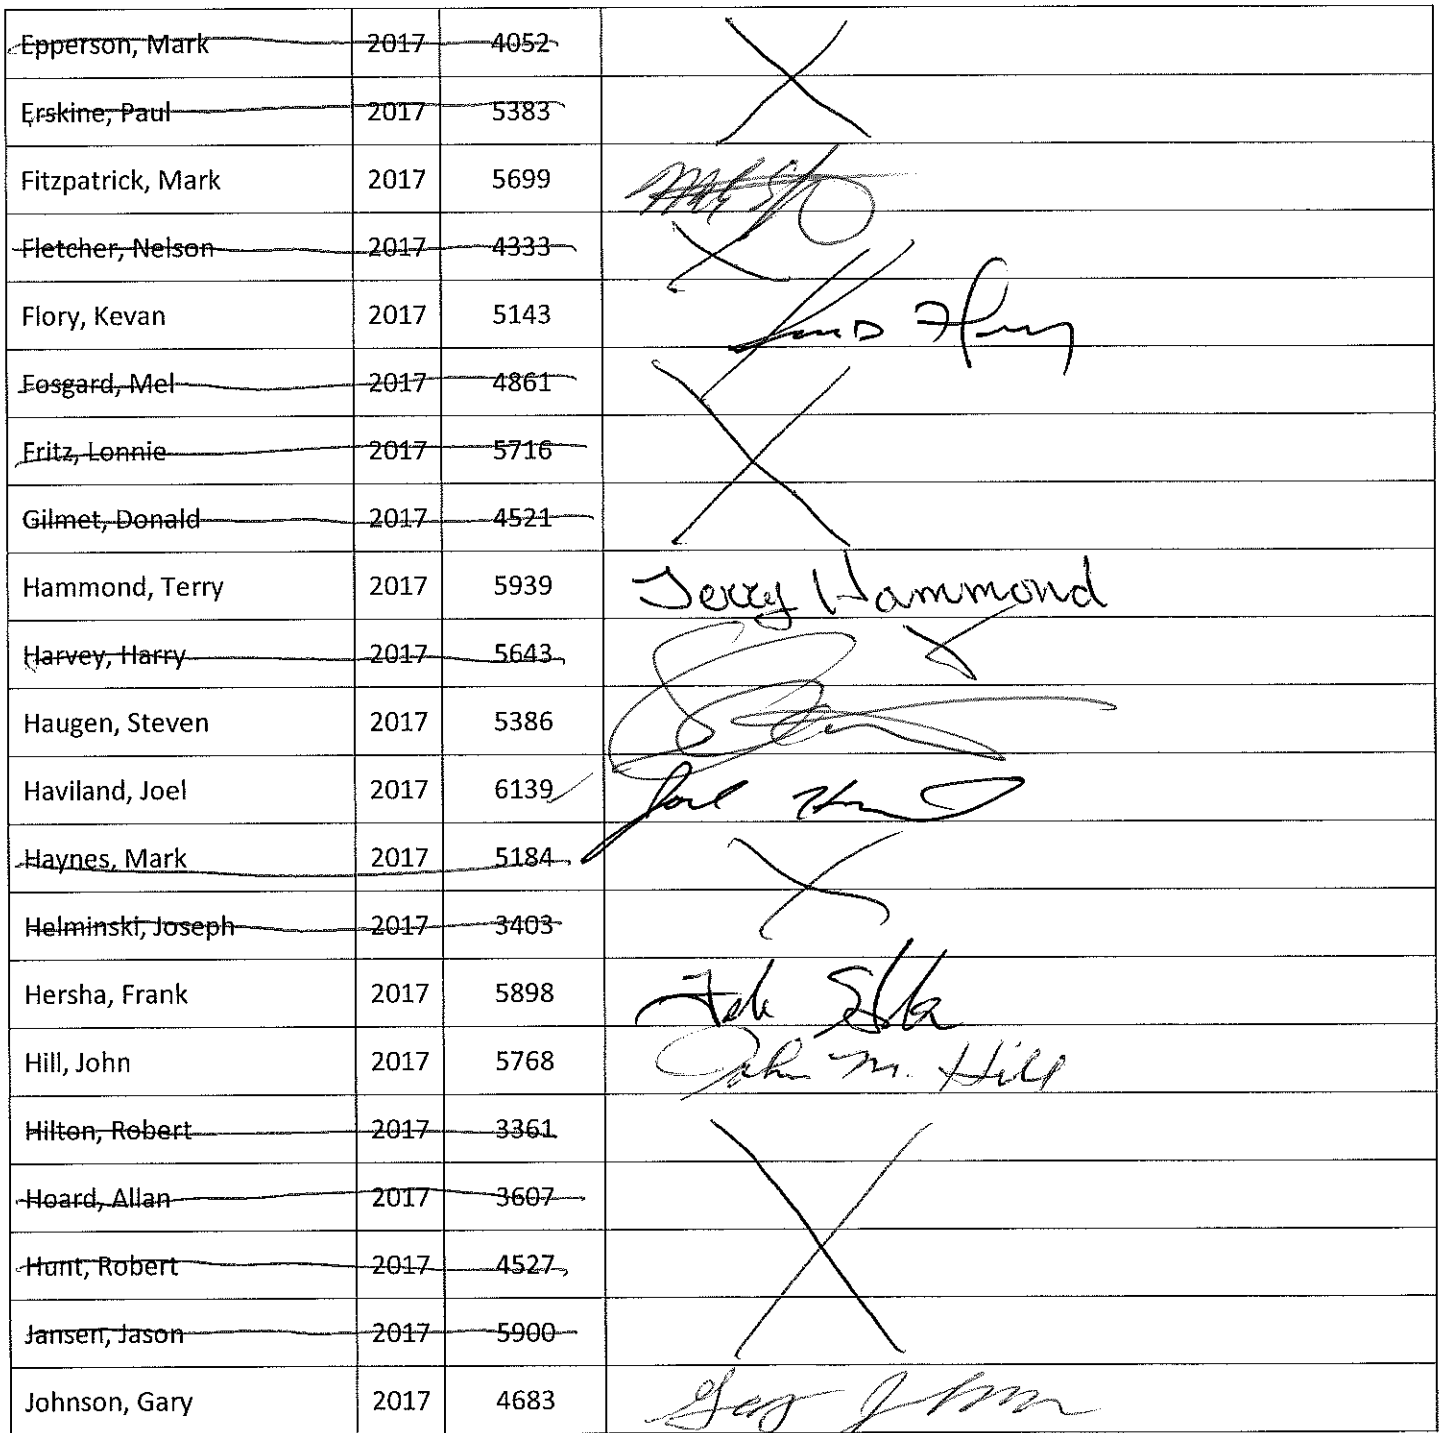 Epperson, Mark 2017 4052
Erskine, Paul 2017 5383
Fitzpatrick, Mark 2017 5699
Fletcher, Nelson 2017 4333
Flory, Kevan 2017 5143
Fosgard, Mel 2017 4861
Fritz, Lonnie 2017 5716
Gilmet, Donald 2017 4521
Hammond, Terry 2017 5939 Terry Hammond
Harvey, Harry 2017 5643
Haugen, Steven 2017 5386
Haviland, Joel 2017 6139 Joel
Haynes, Mark 2017 5184
Helminski, Joseph 2017 3403
Hersha, Frank 2017 5898
Hill, John 2017 5768 John M. Hill
Hilton, Robert 2017 3361
Hoard, Allan 2017 3607
Hunt, Robert 2017 4527
Jansen, Jason 2017 5900
Johnson, Gary 2017 4683 Gary